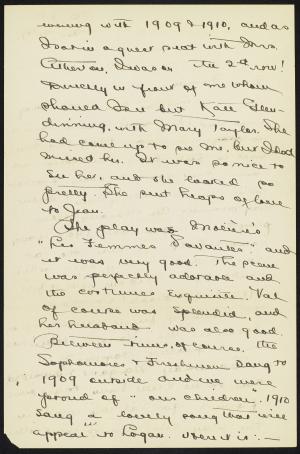 evening with 1909 & 1910, and as
I sat in a guest seat with Mrs.
Atherton, I was on the 2nd row!
Directly in front of me whom
should I see but Kate Glen-
dinning, with Mary Taylor. She
had come up to see me, but I had
missed her. It was so nice to
see her, and she looked so
pretty. She sent heaps of love
to Jean.
The play was Molière's
"Les Femmes Savantes" and
it was very good. The scene
was perfectly adorable and
the costumes exquisite. Val
of course was splendid, and
her husband was also good.
Between times, of course, the
Sophomores & Freshmen sang to
1909 outside and we were
proud of "our children". 1910
sang a lovely song that will
appeal to Logan. Here it is:—